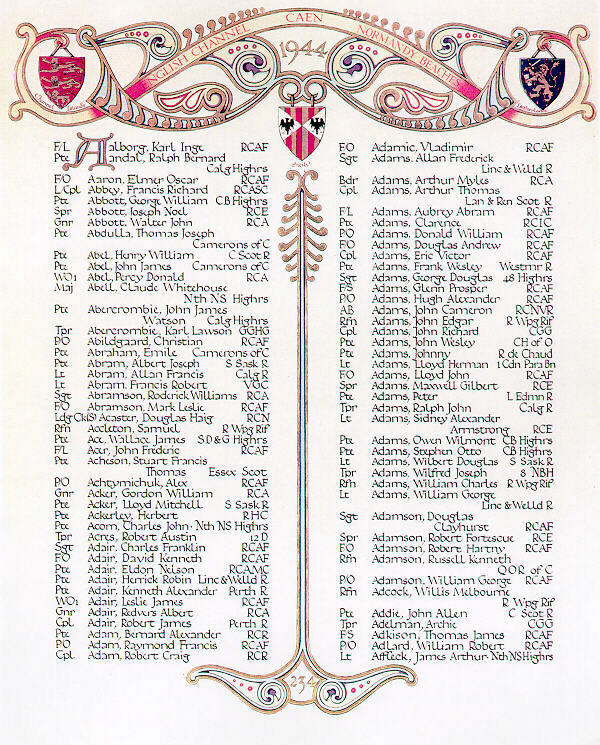 ENGLISH CHANNEL
CAEN
NORMANDY BEACHES
1944
Sicily
F/L Aalborg, Karl Inge RCAF
Pte Aandal, Ralph Bernard
Calg Highrs
F/O Aaron, Elmer Oscar RCAF
L/Cpl Abbey, Francis Richard RCASC
Pte Abbott, George William CB Highrs
Spr Abbott, Joseph Noel RCE
Gnr Abbott, Walter John RCA
Pte Abdulla, Thomas Joseph
Camerons of C
Pte Abel, Henry William C Scot R
Pte Abel, John James Camerons of C
WO1 Abel, Percy Donald RCA
Maj Abell, Claude Whitehouse
Nth NS Highrs
Pte Abercrombie, John James
Watson Calg Highrs
Tpr Abercrombie, Karl Lawson GGHG
P/O Abildgaard, Christian RCAF
Pte Abraham, Emile Camerons of C
Pte Abram, Albert Joseph S Sask R
Lt Abram, Allan Francis Calg R
Lt Abram, Francis Robert VGC
Sgt Abramson, Roderick Williams RCA
F/O Abramson, Mark Leslie RCAF
Ldg Ck(S) Acaster, Douglas Haig RCN
Rfn Accleton, Samuel R Wpg Rif
Pte Ace, Wallace James S D & G Highrs
F/L Acer, John Frederic RCAF
Pte Acheson, Stuart Francis
Thomas Essex Scot
P/O Achtymichuk, Alex RCAF
Gnr Acker, Gordon William RCA
Pte Acker, Lloyd Mitchell S Sask R
Pte Ackerley, Herbert RHC
Pte Acorn, Charles John · Nth NS Highrs
Tpr Acres, Robert Austin 12 D
Sgt Adair, Charles Franklin RCAF
F/O Adair, David Kenneth RCAF
Pte Adair, Eldon Nelson RCAMC
Pte Adair, Herrick Robin Linc & Welld R
Pte Adair, Kenneth Alexander Perth R
WO1 Adair, Leslie James RCAF
Gnr Adair, Redvers Albert RCA
Cpl Adair, Robert James Perth R
Pte Adam, Bernard Alexander RCR
P/O Adam, Raymond Francis RCAF
Cpl Adam, Robert Craig RCR
F/O Adamic, Vladimir RCAF
Sgt Adams, Allan Frederick
Linc & Welld R
Bdr Adams, Arthur Myles RCA
Cpl Adams, Arthur Thomas
Lan & Ren Scot R
F/L Adams, Aubrey Abram RCAF
Pte Adams, Clarence RCIC
P/O Adams, Donald William RCAF
F/O Adams, Douglas Andrew RCAF
Cpl Adams, Eric Victor RCAF
Pte Adams, Frank Wesley Westmr R
Sgt Adams, George Douglas 48 Highrs
F/S Adams, Glenn Prosper RCAF
P/O Adams, Hugh Alexander RCAF
AB Adams, John Cameron RCNVR
Rfn Adams, John Edgar R Wpg Rif
Cpl Adams, John Richard CGG
Pte Adams, John Wesley CH of O
Pte Adams, Johnny R de Chaud
Lt Adams, Lloyd Herman 1 Cdn Para Bn
F/O Adams, Lloyd John RCAF
Spr Adams, Maxwell Gilbert RCE
Pte Adams, Peter L Edmn R
Tpr Adams, Ralph John Calg R
Lt Adams, Sidney Alexander
Armstrong RCE
Pte Adams, Owen Wilmont CB Highrs
Pte Adams, Stephen Otto CB Highrs
Lt Adams, Wilbert Douglas S Sask R
Tpr Adams, Wilfred Joseph 8 NBH
Rfn Adams, William Charles R Wpg Rif
Lt Adams, William George
Linc & Welld R
Sgt Adamson, Douglas
Clayhurst RCAF
Spr Adamson, Robert Fortescue RCE
F/O Adamson, Robert Hartry RCAF
Rfn Adamson, Russell Kenneth
QOR of C
P/O Adamson, William George RCAF
Rfn Adcock, Willis Melbourne
R Wpg Rif
Pte Addie, John Allen C Scot R
Tpr Adelman, Archie CGG
F/S Adkison, Thomas James RCAF
P/O Adlard, William Robert RCAF
Lt Affleck, James Arthur · Nth NS Highrs
234